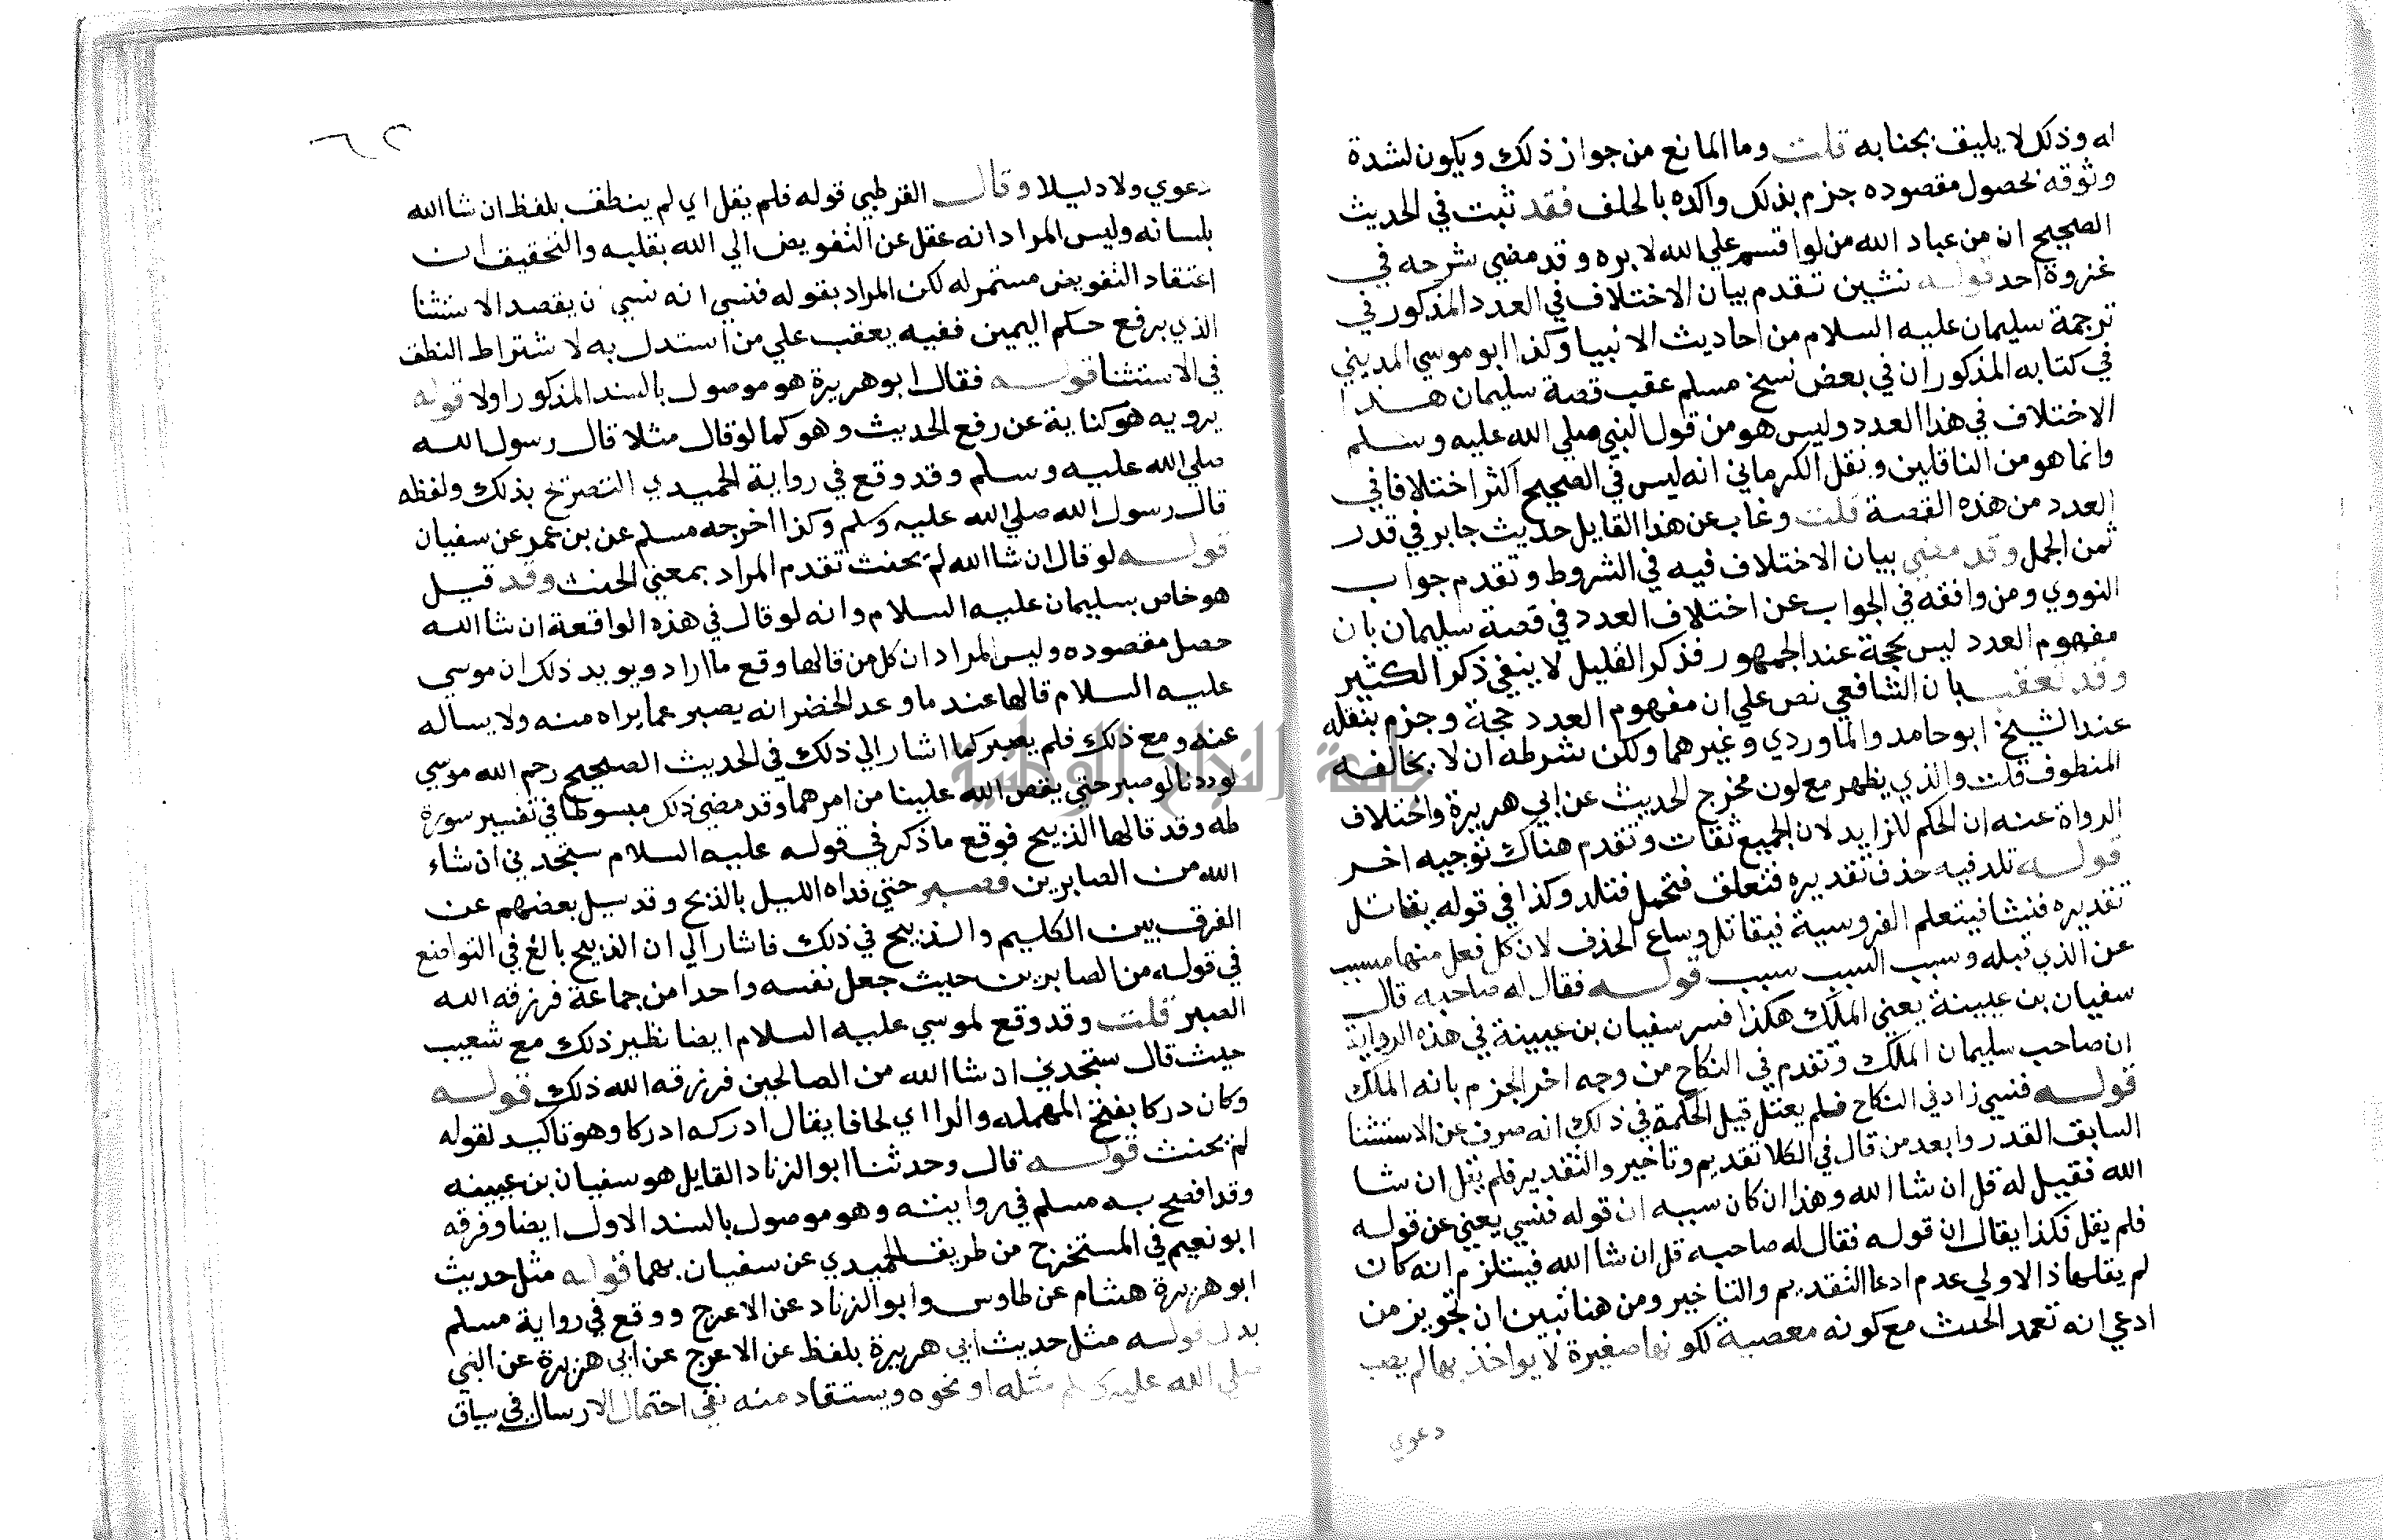 له وذلك لا يليق بجنابه قلت وما المانع من جواز ذلك ويكون لشدة
وثوقه بحصول مقصوده جزم بذلك واكده بالحلف فقد ثبت في الحديث
الصحيح ان من عباد الله من لو اقسم علي الله لابره وقد مضي شرحه في
غزوة احد قوله تسعين تقدم بيان الاختلاف في العدد المذكور في
ترجمة سليمان عليه السلام من احاديث الانبيا وكذا ابو موسي المديني
في كتابه المذكور ان في بعض نسخ مسلم عقب قصة سليمان هذا
الاختلاف في هذا العدد وليس هو من قول النبي صلي الله عليه وسلم
وانما هو من الناقلين ونقل الكرماني انه ليس في الصحيح اكثر اختلافا في
العدد من هذه القصة قلت وغاب عن هذا القايل حديث جابر في قدر
ثمن الجمل وقد مضي بيان الاختلاف فيه في الشروط وتقدم جواب
النووي ومن وافقه في الجواب عن اختلاف العدد في قصة سليمان بان
مفهوم العدد ليس بحجة عند الجمهور فذكر القليل لا ينفي ذكر الكثير
وقد تعقب بان الشافعي نص علي ان مفهوم العدد حجة وجزم بنقله
عند الشيخ ابو حامد والماوردي وغيرهما ولكن شرطه ان لا يخالفه
المنطوف قلت والذي يظهر مع لون مخرج الحديث عن ابي هريرة واختلاف
الرواة عنه ان الحكم للزايد لان الجميع ثقات وتقدم هناك توجيه اخر
قوله تلد فيه حذف تقديره فتعلف فتحمل فتلد وكذا في قوله يقاتل
تقديره فينشا فيتعلم الفروسية فيقاتل وساغ الحذف لان كل فعل منها مسبب
عن الذي قبله وسبب السبب سبب قوله فقال له صاحبه قال
سفيان بن عيينة يعني الملك هكذا فسر سفيان بن عيينة في هذه الرواية
ان صاحب سليمان الملك وتقدم في النكاح من وجه اخر الجزم بانه الملك
قوله فنسي زاد في النكاح فلم يقل قيل الحكمة في ذلك انه صرف عن الاستثنا
السابق القدر وابعد من قال في الكلا تقديم وتاخير والتقدير فلم يقل ان شا
الله فقيل له قل ان شا الله وهذا ان كان سببه ان قوله فنسي يعني عن قوله
فلم يقل فكذا يقال ان قوله فقال له صاحبه قل ان شا الله فيستلزم انه كان
لم يقلها فالاولي عدم ادعا التقديم والتاخير ومن هنا تبين ان تجويز من
ادعي انه تعمد الحنث مع كونه معصية لكونها صغيرة لا يواخذ بها لم يصب
دعوي
دعوي ولا دليلا وقال القرطبي قوله فلم يقل اي لم ينطق بلفظ ان شا الله
بلسانه وليس المراد انه غفل عن التفويض الي الله بقلبه والتحقيق ان
اعتقاد التفويض مستمر له لكن المراد بقوله فنسي انه نسي ان يقصد الاستثنا
الذي يرفع حكم اليمين ففيه يعقب علي من استدل به لاشتراط النطق
في الاستثنا قوله فقال ابو هريرة هو موصول بالسند المذكور اولا قوله
يرويه هو كناية عن رفع الحديث وهو كما لو قال مثلا قال رسول الله
صلي الله عليه وسلم وقد وقع في رواية الحميدي التصريح بذلك ولفظه
قال رسول الله صلي الله عليه وسلم وكذا اخرجه مسلم عن بن عمر عن سفيان
قوله لو قال ان شا الله لم يحنث تقدم المراد بمعني الحنث وقد قيل
هو خاص بسليمان عليه السلام وانه لو قال في هذه الواقعة ان شا الله
حصل مقصوده وليس المراد ان كل من قالها وقع ما اراد ويويد ذلك ان موسي
عليه السلام قالها عند ما وعد الخضر انه يصبر عما يراه منه ولا يساله
عنه ومع ذلك فلم يصبر كما اشار الي ذلك في الحديث الصحيح رحم الله موسي
لوددنا لو صبر حتي يقص الله علينا من امرهما وقد مضي ذلك مبسوطا في تفسير سورة
طه وقد قالها الذبيح فوقع ما ذكر في قوله عليه السلام ستجدني ان شاء
الله من الصابرين فصبر حتي فداه الله بالذبح وقد سيل بعضهم عن
الفرق بين الكليم والذبيح في ذلك فاشار الي ان الذبيح بالغ في التواضع
في قوله من الصابرين حيث جعل نفسه واحدا من جماعة فرزقه الله
الصبر قلت وقد وقع لموسي عليه السلام ايضا نظير ذلك مع شعيب
حيث قال ستجدني ان شا الله من الصالحين فرزقه الله ذلك قوله
وكان دركا بفتح المهمله والرا اي لحاقا يقال ادركه ادركا وهو تاكيد لقوله
لم يحنث قوله قال وحدثنا ابو الزناد القايل هو سفيان بن عيينه
وقد افصح به مسلم في روايته وهو موصول بالسند الاول ايضا وفرقه
ابو نعيم في المستخرج من طريق الحميدي عن سفيان بهما قوله مثل حديث
ابو هريرة هشام عن طاوس وابو الزناد عن الاعرج ووقع في رواية مسلم
بدل قوله مثل حديث ابي هريرة بلفظ عن الاعرج عن ابي هريرة عن النبي
صلي الله عليه وسلم مثله او نحوه ويستفاد منه نفي احتمال الارسال في سياق
جامعة النجاح الوطنية